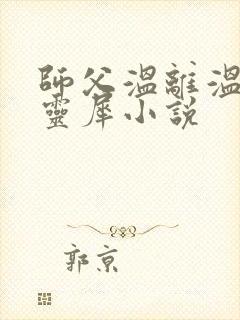 師父溫離溫
靈犀小說
郭京